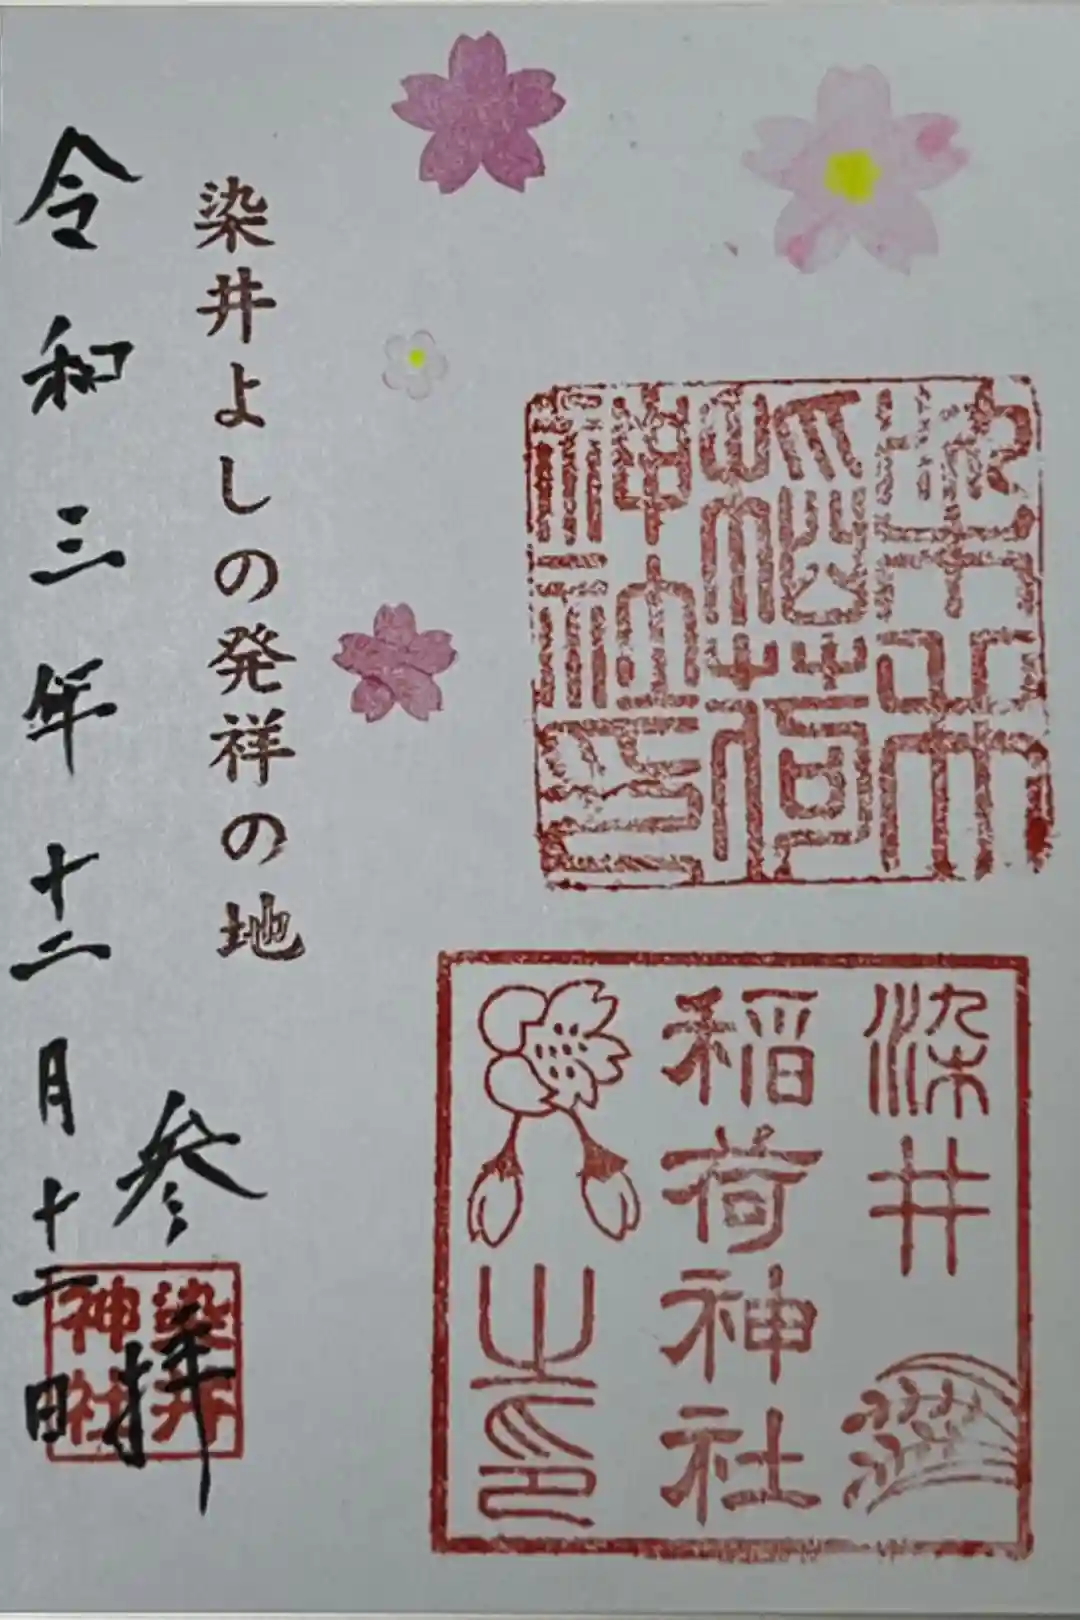 染井
稲荷
神社印
染井
稲荷神社
之印
染井よしの発祥の地
参拝
染井
神社
令和三年十二月十二日